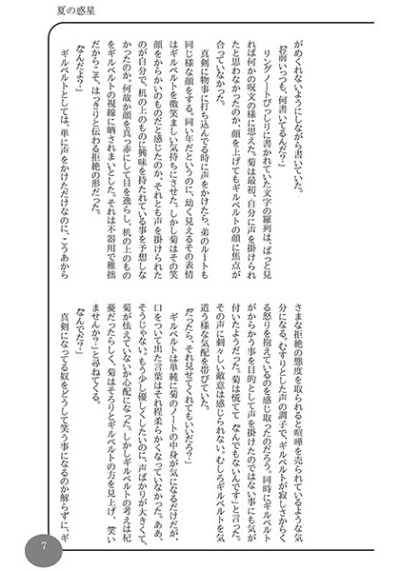 夏の惑星
がめくれないようにしながら書いていた。
「お前いっつも、何書いてるんだ？」
リングノートびっしりに書かれていた文字の羅列は、ぱっと見
れば何かの呪文の様に思えた。菊は最初、自分に声を掛けられ
たと思わなかったのか、顔を上げてもギルベルトの顔に焦点が
合っていなかった。
真剣に物事に打ち込んでる時に声をかけたら、弟のルートも
同じ様な顔をする。同い年だというのに、幼く見えるその表情
はギルベルトを微笑ましい気持ちにさせた。しかし菊はその笑
顔をからかいのものだと感じたのか、それとも声を掛けられた
のが自分で、机の上のものに興味を持たれている事を予想しな
かったのか。何故か顔を真っ赤にして目を逸らし、机の上のもの
をギルベルトの視線に晒されまいとした。それは不器用で稚拙
だからこそ、はっきりと伝わる拒絶の形だった。
「なんだよ？」
ギルベルトとしては、単に声をかけただけなのに、こうあから
さまな拒絶の態度を取られると喧嘩を売られているような気
分になる。むすりとした声の調子で、ギルベルトが寂しさからく
る怒りを抱えているのを感じ取ったのだろう。同時にギルベルト
がからかう事を目的として声を掛けたのではない事にも気が
付いたようだった。菊は慌てて「なんでもないんです」と言った。
その声に刺々しい敵意は感じられない。むしろギルベルトを気
遣う様な気配を帯びていた。
「だったら、それ見せてくれてもいいだろ？」
ギルベルトは単純に菊のノートの中身が気になるだけだが、
口をついて出た言葉はそれ程柔らかくなっていなかった。ああ、
そうじゃない。もう少し優しくしたいのに、声ばかりが大きくて、
菊が怯えていないか心配になった。しかしギルベルトの考えは杞
憂だったらしく、菊はそろりとギルベルトの方を見上げ、「笑い
ませんか？」と尋ねてくる。
「なんでだ？」
真剣になってる奴をどうして笑う事になるのか解らずに、ギ
7